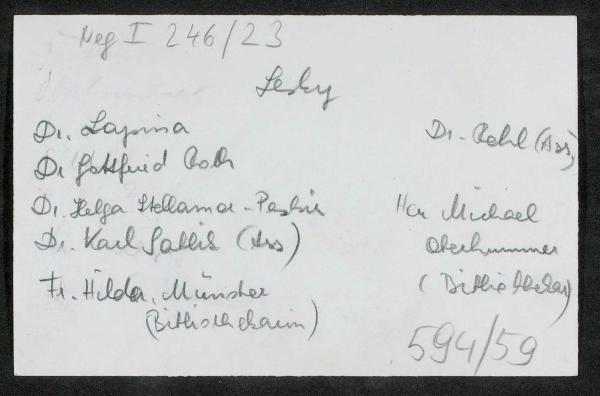 Neg I 246/23
Lesky
Dr. Lapina
Dr. Rohl (Ass)
Dr Gottfried Roth
Dr. Helga Stellamor-
Herr Michael
Dr. Karl Sablik (Ass)
Oberhummer
Fr. Hilda Münster
(Bibliothekar)
(Bibliothekarin)
594/59